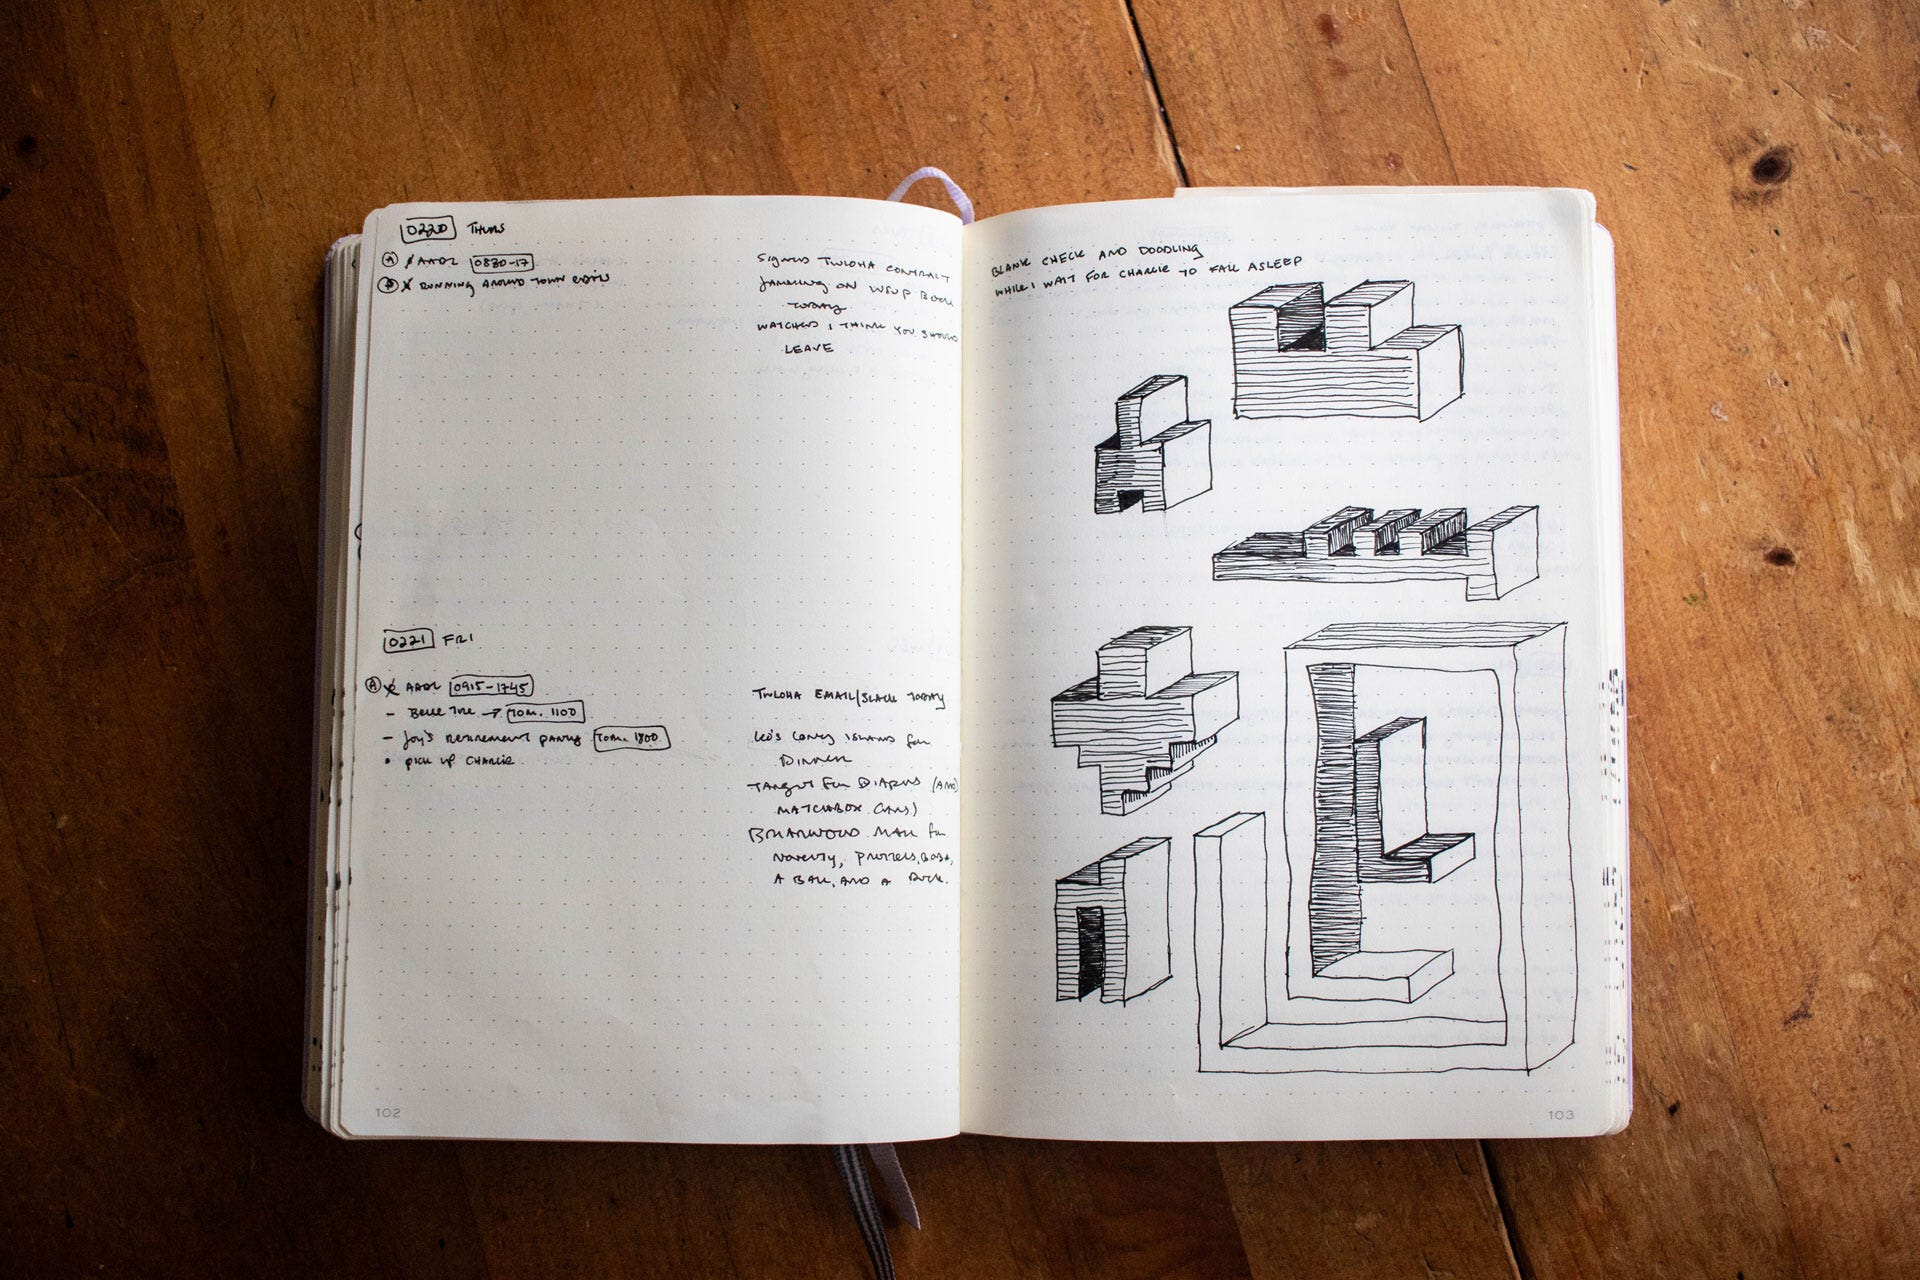 0220 THURS
A x AADL 0830-17
A x RUNNING AROUND TOWN edits
SIGNED TWLOHA CONTRACT
JAMMING ON WSUP BOOK
TODAY
WATCHED I THINK YOU SHOULD
LEAVE
0221 FRI
A x AADL 0915-1745
- Belle Tire → TOM. 1100
- Joy's RETIREMENT PARTY TOM. 1800
• PICK UP CHARLIE
TWLOHA EMAIL/SLACK TODAY
Leo's CONEY ISLAND for
DINNER
TARGET for DIAPERS (AND
MATCHBOX CARS)
BRIARWOOD MALL for
NOVELTY, PRETZELS, BOBA,
A BALL, AND A DUCK.
102
BLANK CHECK AND DOODLING
WHILE I WAIT FOR CHARLIE TO FALL ASLEEP
103